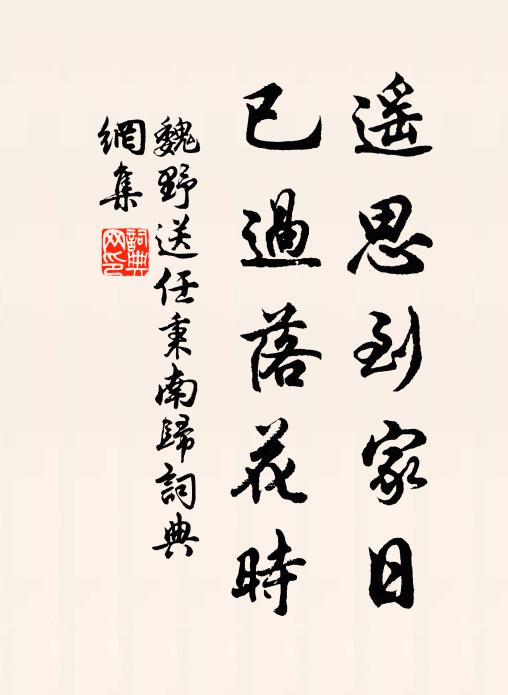 遥思到家日
已過落花時
魏野送任秉南歸詞典
網集
詞典
网印